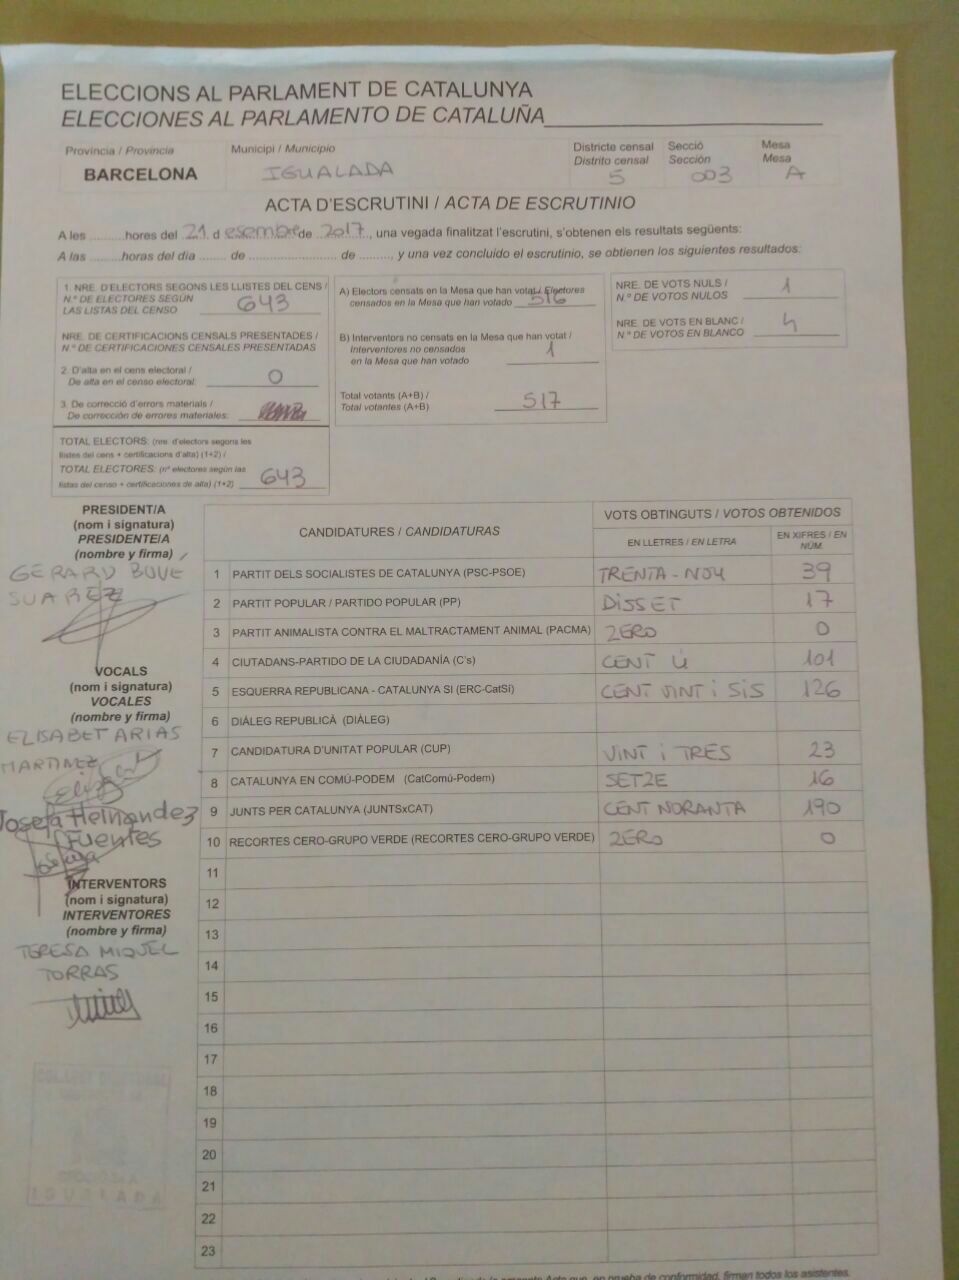 ELECCIONS AL PARLAMENT DE CATALUNYA
ELECCIONES AL PARLAMENTO DE CATALUÑA
Provincia / Provincia
BARCELONA
Municipi / Municipio
IGUALADA
Districte censal
Distrito censal
5
Secció
Sección
003
Mesa
Mesa
A
ACTA D'ESCRUTINI / ACTA DE ESCRUTINIO
A les ..........hores del 21 d esembre de 2017, una vegada finalitzat l'escrutini, s'obtenen els resultats següents:
A las ..........horas del día ....... de ....................... de ........., y una vez concluido el escrutinio, se obtienen los siguientes resultados:
1. NRE. D'ELECTORS SEGONS LES LLISTES DEL CENS /
N.º DE ELECTORES SEGÚN
LAS LISTAS DEL CENSO
643
NRE. DE CERTIFICACIONS CENSALS PRESENTADES /
N.º DE CERTIFICACIONES CENSALES PRESENTADAS
2. D'alta en el cens electoral /
De alta en el censo electoral:
0
3. De correcció d'errors materials /
De corrección de errores materiales:
TOTAL ELECTORS: (nre. d'electors segons les
llistes del cens + certificacions d'alta) (1+2) /
TOTAL ELECTORES: (nº electores según las
listas del censo + certificaciones de alta) (1+2)
643
A) Electors censats en la Mesa que han votat / Electores
censados en la Mesa que han votado
516
B) Interventors no censats en la Mesa que han votat /
Interventores no censados
en la Mesa que han votado
1
Total votants (A+B) /
Total votantes (A+B)
517
NRE. DE VOTS NULS /
N.º DE VOTOS NULOS
1
NRE. DE VOTS EN BLANC /
N.º DE VOTOS EN BLANCO
4
PRESIDENT/A
(nom i signatura)
PRESIDENTE/A
(nombre y firma)
GERARD BOVE
SUAREZ
VOCALS
(nom i signatura)
VOCALES
(nombre y firma)
ELISABET ARIAS
MARTINEZ
Josefa Hernandez
Fuentes
INTERVENTORS
(nom i signatura)
INTERVENTORES
(nombre y firma)
TERESA MIQUEL
TORRAS
CANDIDATURES / CANDIDATURAS
VOTS OBTINGUTS / VOTOS OBTENIDOS
EN LLETRES / EN LETRA
EN XIFRES / EN NÚM.
1 PARTIT DELS SOCIALISTES DE CATALUNYA (PSC-PSOE) TRENTA-NOU 39
2 PARTIT POPULAR / PARTIDO POPULAR (PP) DISSET 17
3 PARTIT ANIMALISTA CONTRA EL MALTRACTAMENT ANIMAL (PACMA) ZERO 0
4 CIUTADANS-PARTIDO DE LA CIUDADANÍA (C's) CENT Ú 101
5 ESQUERRA REPUBLICANA - CATALUNYA SI (ERC-CatSí) CENT VINT i SIS 126
6 DIÀLEG REPUBLICÀ (DIÀLEG)
7 CANDIDATURA D'UNITAT POPULAR (CUP) VINT i TRES 23
8 CATALUNYA EN COMÚ-PODEM (CatComú-Podem) SETZE 16
9 JUNTS PER CATALUNYA (JUNTSxCAT) CENT NORANTA 190
10 RECORTES CERO-GRUPO VERDE (RECORTES CERO-GRUPO VERDE) ZERO 0
11
12
13
14
15
16
17
18
19
20
21
22
23
IGUALADA
en prueba de conformidad, firman todos los asistentes.